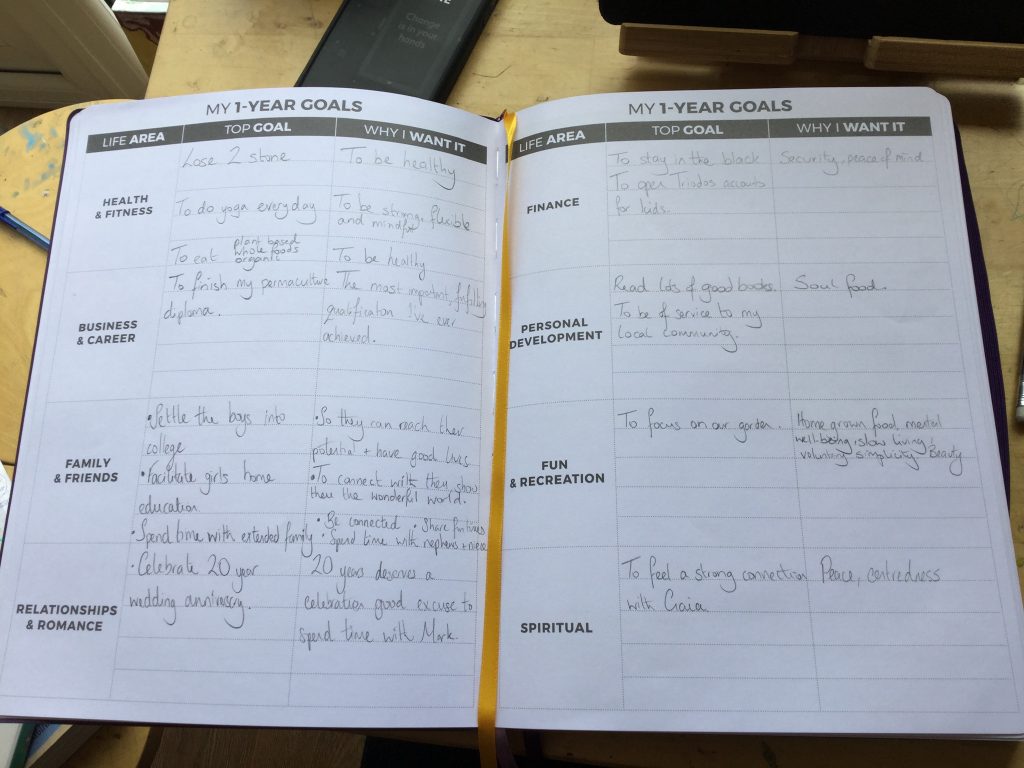 Change
is in your
hands
MY 1-YEAR GOALS
LIFE AREA TOP GOAL WHY I WANT IT
HEALTH
& FITNESS
Lose 2 stone
To be healthy
To do yoga everyday
To be strong, flexible
and mindful
To eat plant based
whole foods
organic
To be healthy
BUSINESS
& CAREER
To finish my permaculture
diploma.
The most important, fulfilling
qualification I've ever
achieved.
FAMILY
& FRIENDS
• Settle the boys into
college
• So they can reach their
potential + have good lives
• Facilitate girls home
education
• To connect with they, show
them the wonderful world.
• Spend time with extended family
• Be connected • Share fun times
• Spend time with nephews + niece
RELATIONSHIPS
& ROMANCE
• Celebrate 20 year
wedding anniversary.
20 years deserves a
celebration good excuse to
spend time with Mark.
MY 1-YEAR GOALS
LIFE AREA TOP GOAL WHY I WANT IT
FINANCE
To stay in the black
To open Triodos accounts
for kids.
Security, peace of mind
PERSONAL
DEVELOPMENT
Read lots of good books.
To be of service to my
local community.
Soul food.
FUN
& RECREATION
To focus on our garden.
Home grown food, mental
well-being, slow living,
voluntary simplicity, beauty
SPIRITUAL
To feel a strong connection
with Gaia
Peace, centredness